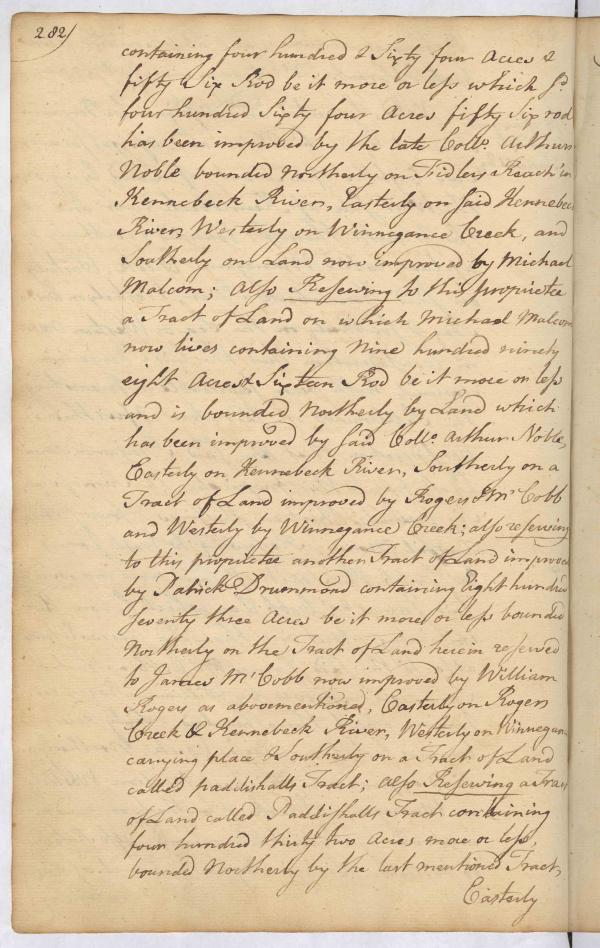 282/
containing four hundred & Sixty four Acres &
fifty Six Rod be it more or less which Sd.
four hundred Sixty four Acres fifty Six rod
has been improved by the late Collo. Arthur
Noble bounded Northerly on Fidlers Reach in
Kennebeck River, Easterly on said Kennebec
River, Westerly on Winnegance Creek, and
Southerly on Land now improved by Michael
Malcom; also Reserving to this proprietee
a Tract of Land on which Michael Malcom
now lives containing Nine hundred ninety
eight Acres & Sixteen Rod be it more or less
and is bounded Northerly by Land which
has been improved by said Collo. Arthur Noble,
Easterly on Kennebeck River, Southerly on a
Tract of Land improved by Rogers & Mc Cobb
and Westerly by Winnegance Creek; also reserving
to this proprietee another Tract of Land improved
by Patrick Drummond containing Eight hundred
seventy three Acres be it more or less bounded
Northerly on the Tract of Land herein reserved
to James Mc Cobb now improved by William
Rogers as abovementioned, Easterly on Rogers
Creek & Kennebeck River, Westerly on Winnegan
carrying place & Southerly on a Tract of Land
called paddishalls Tract; also Reserving a Tract
of Land called Paddishalls Tract containing
four hundred thirty two Acres more or less,
bounded Northerly by the last mentioned Tract,
Easterly